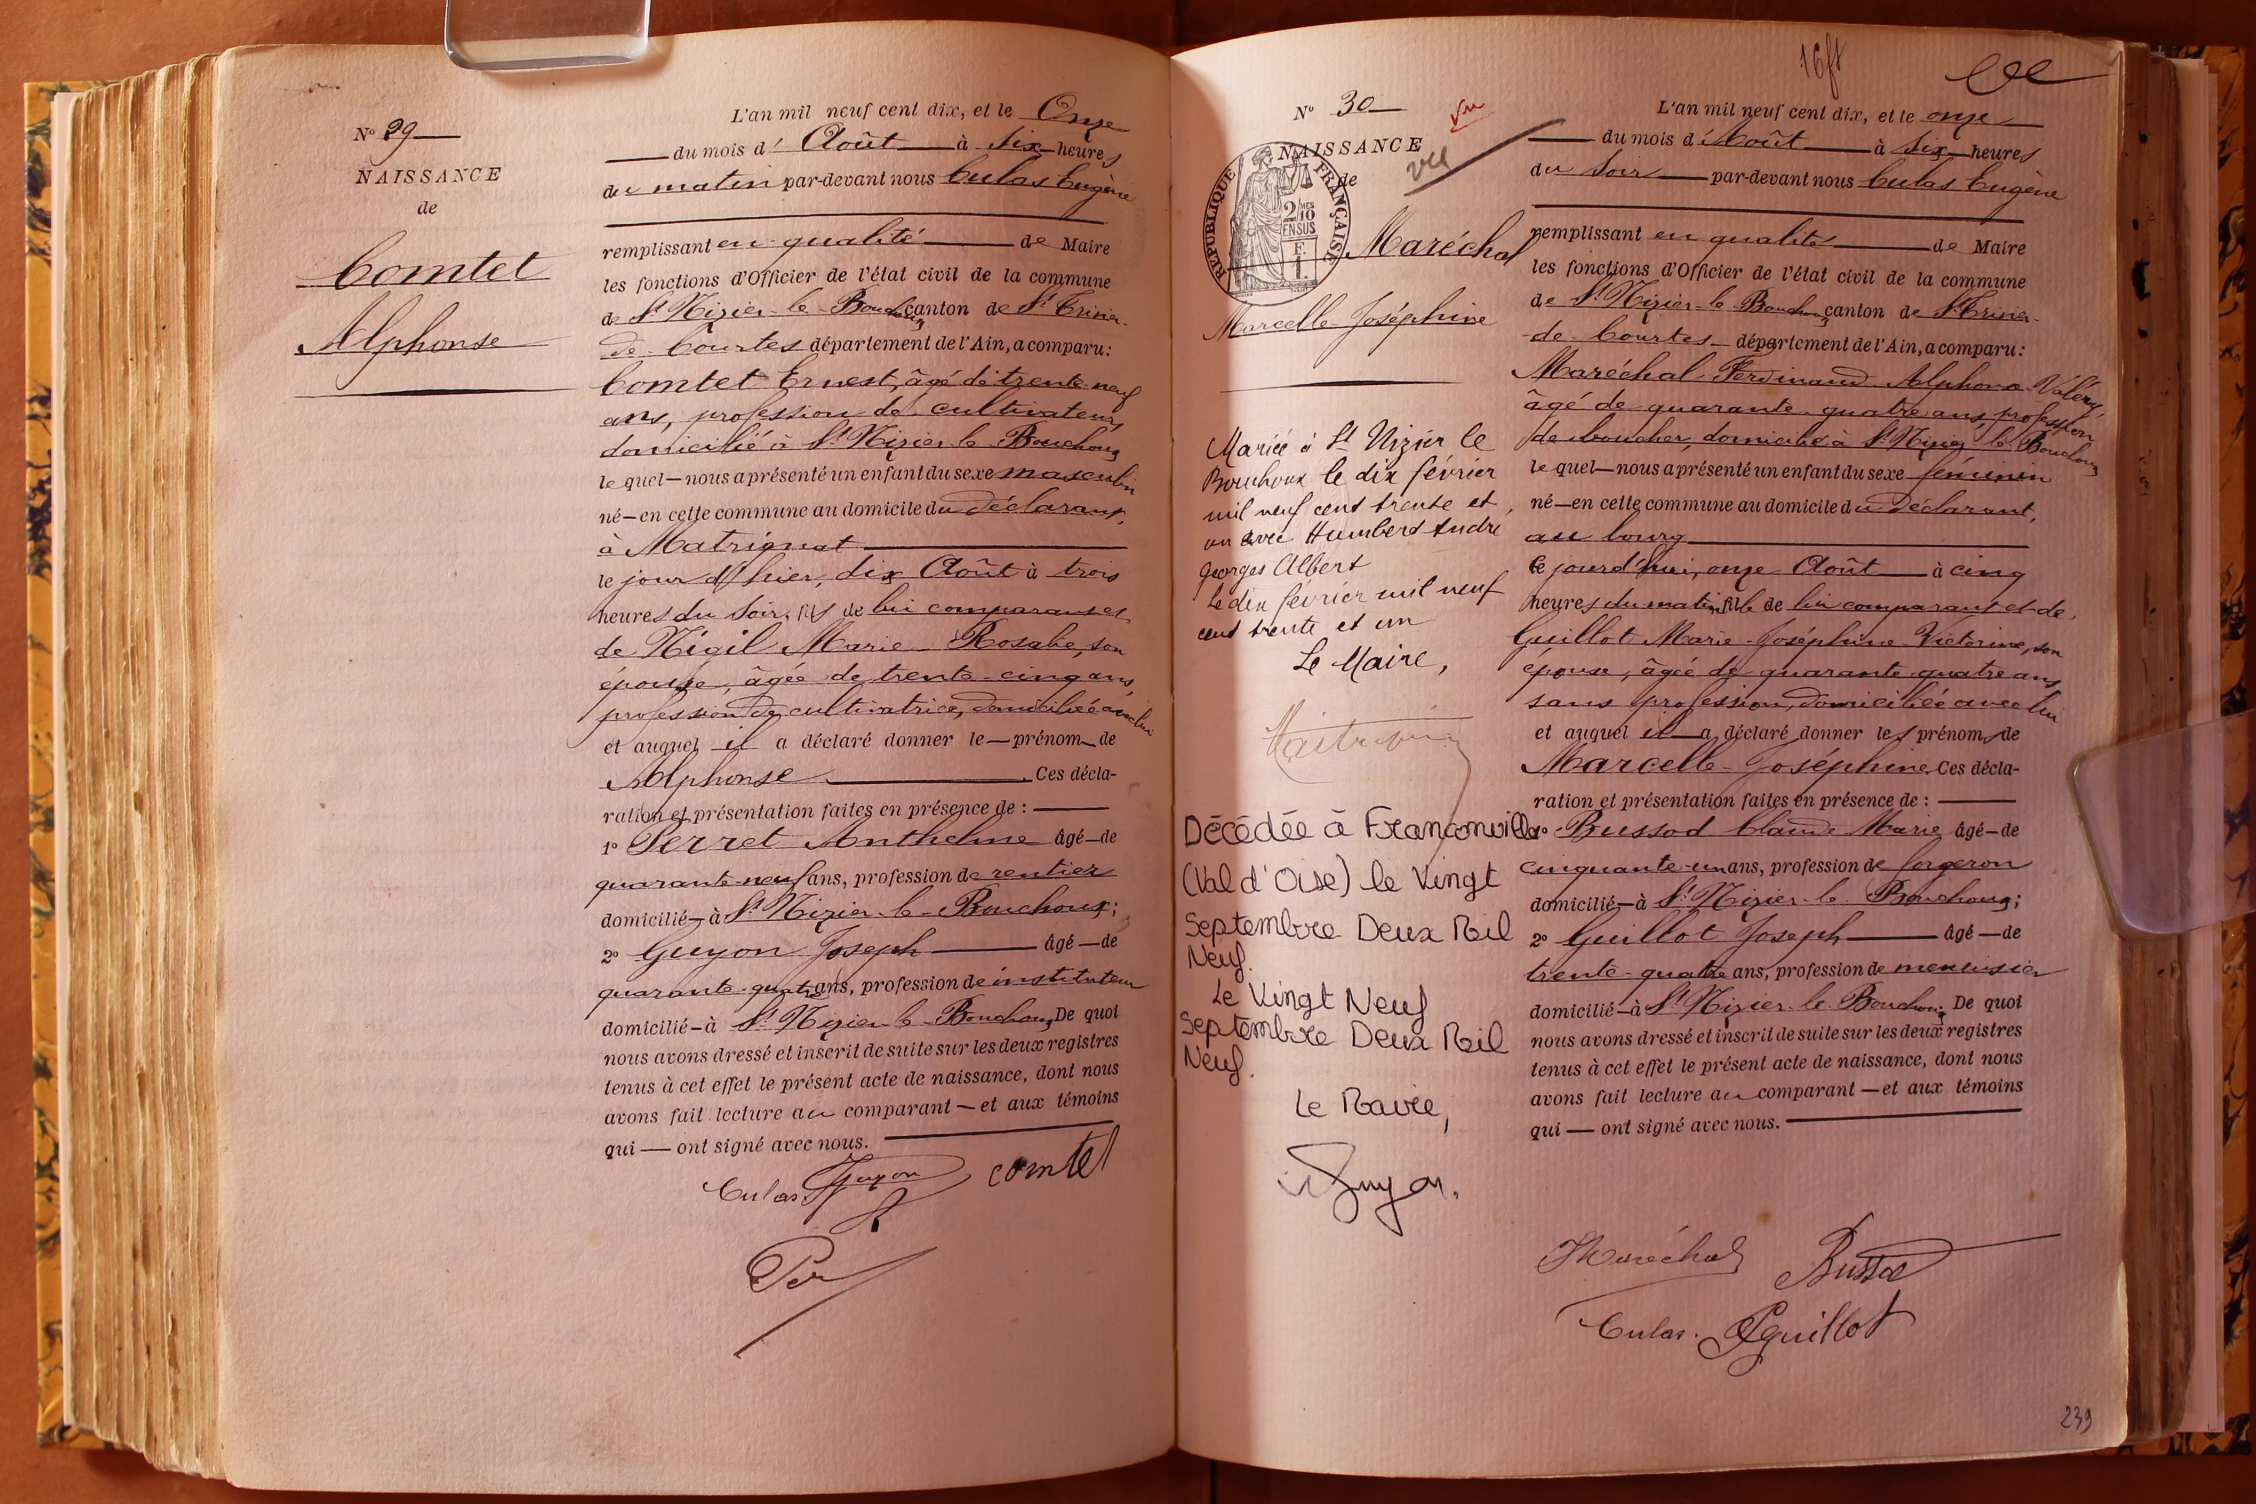 N° 29
NAISSANCE
de
Comtet
Alphonse
L'an mil neuf cent dix, et le Onze
du mois d' Août à Six heures
du matin par-devant nous Culas Eugène
remplissant en qualité de Maire
les fonctions d'Officier de l'état civil de la commune
de St Nizier-le-Bouchoux canton de St Trivier-
de-Courtes département de l'Ain, a comparu :
Comtet Ernest, âgé de trente-neuf
ans, profession de cultivateur,
domicilié à St Nizier-le-Bouchoux
lequel nous a présenté un enfant du sexe masculin
né en cette commune au domicile du déclarant,
à Matrignat
le jour d'hier, dix Août à trois
heures du soir, fils de lui comparant et
de Nigil Marie Rosalie, son
épouse, âgée de trente-cinq ans,
profession de cultivatrice, domiciliée avec lui
et auquel il a déclaré donner le prénom de
Alphonse. Ces décla-
ration et présentation faites en présence de :
1° Perret Anthelme âgé de
quarante-neuf ans, profession de rentier
domicilié à St Nizier-le-Bouchoux ;
2° Guyon Joseph âgé de
quarante-quatre ans, profession de instituteur
domicilié à St Nizier-le-Bouchoux De quoi
nous avons dressé et inscrit de suite sur les deux registres
tenus à cet effet le présent acte de naissance, dont nous
avons fait lecture au comparant et aux témoins
qui ont signé avec nous.
Culas Guyon comtet
Per
16ft
N° 30
vu
NAISSANCE
de
REPUBLIQUE FRANÇAISE
2/10
EN SUS
Maréchal
Marcelle Joséphine
Mariée à St Nizier le
Bouchoux le dix février
mil neuf cent trente et
un avec Humbert André
Georges Albert
Le dix février mil neuf
cent trente et un
Le Maire,
Décédée à Franconville
(Val d'Oise) le Vingt
Septembre Deux Mil
Neuf.
Le Vingt Neuf
Septembre Deux Mil
Neuf.
Le Maire,
Guyon.
L'an mil neuf cent dix, et le onze
du mois d'Août à Six heures
du Soir par-devant nous Culas Eugène
remplissant en qualité de Maire
les fonctions d'Officier de l'état civil de la commune
de St Nizier-le-Bouchoux canton de St Trivier-
de-Courtes département de l'Ain, a comparu :
Maréchal Ferdinand Alphonse Valéry,
âgé de quarante-quatre ans, profession
de boucher, domicilié à St Nizier-le-Bouchoux
lequel nous a présenté un enfant du sexe féminin
né en cette commune au domicile du déclarant,
au bourg
Ce jourd'hui, onze Août à cinq
heures du matin, fille de lui comparant et de
Guillot Marie-Joséphine Victorine, son
épouse, âgée de quarante-quatre ans
sans profession, domiciliée avec lui
et auquel il a déclaré donner les prénoms de
Marcelle-Joséphine. Ces décla-
ration et présentation faites en présence de :
1° Bussod Claude Marie âgé de
cinquante-un ans, profession de forgeron
domicilié à St Nizier-le-Bouchoux ;
2° Guillot Joseph âgé de
trente-quatre ans, profession de menuisier
domicilié à St Nizier-le-Bouchoux De quoi
nous avons dressé et inscrit de suite sur les deux registres
tenus à cet effet le présent acte de naissance, dont nous
avons fait lecture au comparant et aux témoins
qui ont signé avec nous.
Maréchal Bussod
Culas. Guillot
239